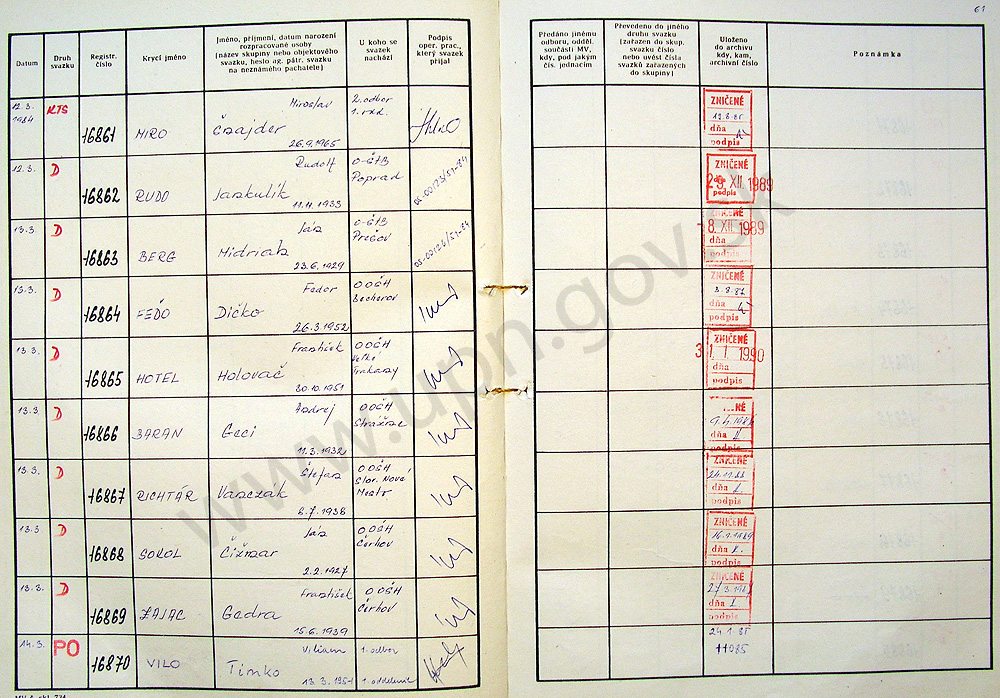 61
Datum
Druh svazku
Registr. číslo
Krycí jméno
Jméno, příjmení, datum narození
rozpracované osoby
(název skupiny nebo objektového
svazku, heslo ag. pátr. svazku
na neznámého pachatele)
U koho se
svazek
nachází
Podpis
oper. prac.,
který svazek
přijal
Předáno jinému
odboru, odděl.
součásti MV,
kdy, pod jakým
čís. jednacím
Převedeno do jiného
druhu svazku
(zařazen do skup.
svazku číslo
nebo uvést čísla
svazků zařazených
do skupiny)
Uloženo
do archivu
kdy, kam,
archivní číslo
Poznámka
12.3.
1984
KTS
16861
MIRO
Miroslav
Čsajder
26.9.1965
2. odbor
ZNIČENÉ
dňa
podpis
12.3.
D
16862
RUDO
Rudolf
Jaskulík
11.4.1933
O-ŠTB
Poprad
ZNIČENÉ
29. XII. 1989
podpis
13.3.
D
16863
BERG
Ján
Hidriak
23.6.1929
O-ŠTB
Prešov
ZNIČENÉ
8. XII. 1989
dňa
podpis
13.3.
D
16864
FEDO
Fedor
Dičko
26.3.1952
OOČH
Becherov
ZNIČENÉ
dňa
podpis
13.3.
D
16865
HOTEL
František
Holovač
30.10.1951
OOČH
Veľké
Trakany
ZNIČENÉ
31. 1. 1990
dňa
podpis
13.3.
D
16866
BARAN
Andrej
Geci
11.3.1932
OOČH
dňa
podpis
13.3.
D
16867
RICHTÁR
Štefan
Vasczák
8.7.1938
OOČH
Slov. Nové
Mesto
ZNIČENÉ
dňa
podpis
13.3.
D
16868
SOKOL
Ján
Čižmar
2.2.1927
OOČH
Čerhov
ZNIČENÉ
dňa
podpis
13.3.
D
16869
ZAJAC
František
Gedra
15.6.1939
OOČH
Čerhov
ZNIČENÉ
dňa
podpis
14.3.
PO
16870
VILO
Viliam
Timko
13.3.1954
1. odbor
1. oddelenie
24.1.85
11085
www.upn.gov.sk